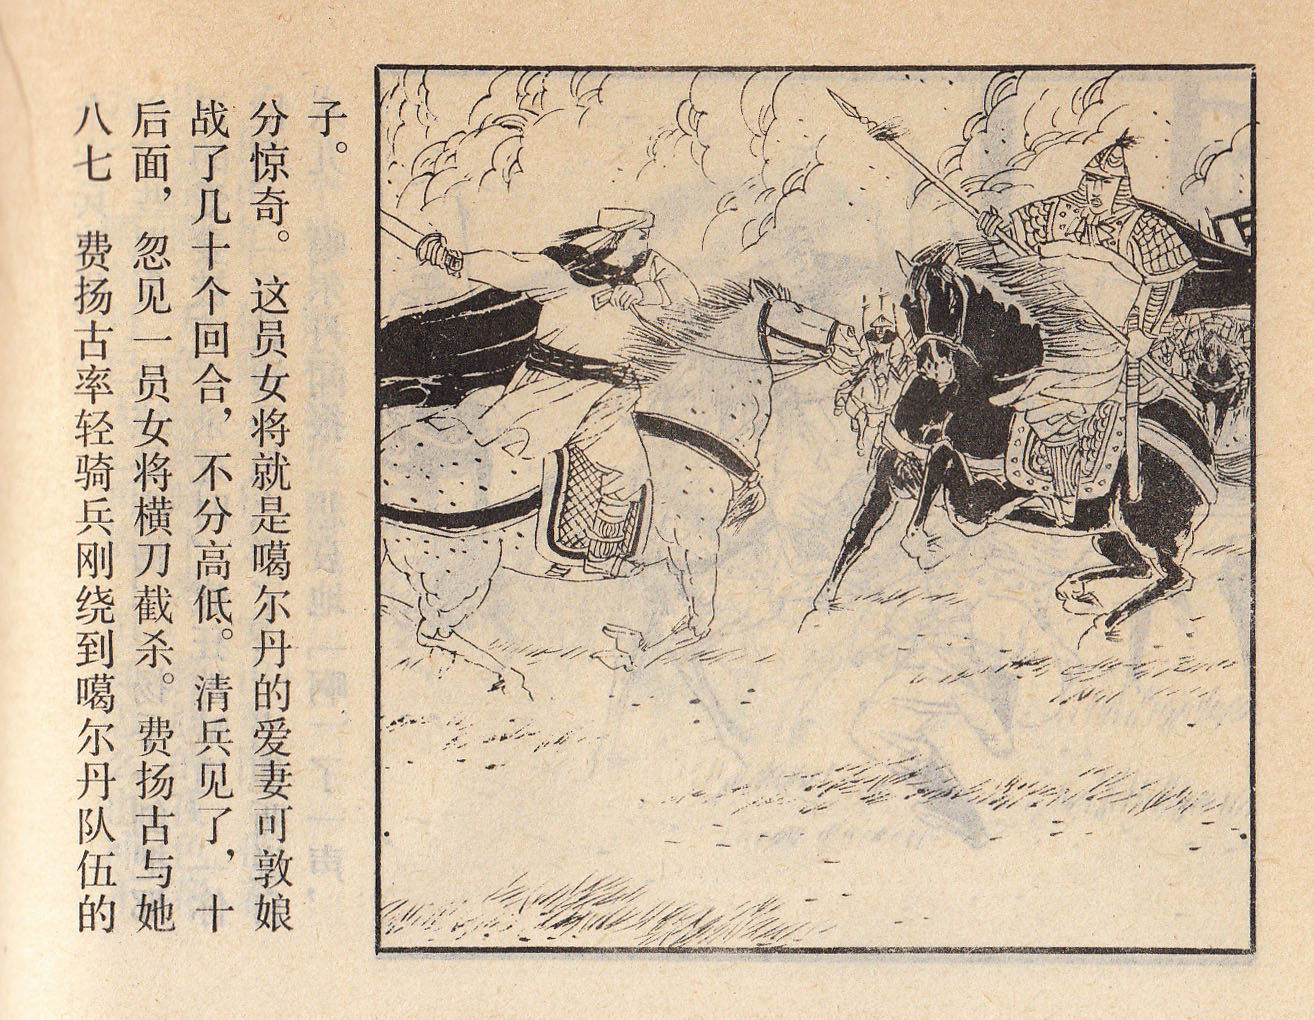 八七 费扬古率轻骑兵刚绕到噶尔丹队伍的
后面，忽见一员女将横刀截杀。费扬古与她
战了几十个回合，不分高低。清兵见了，十
分惊奇。这员女将就是噶尔丹的爱妻可敦娘
子。